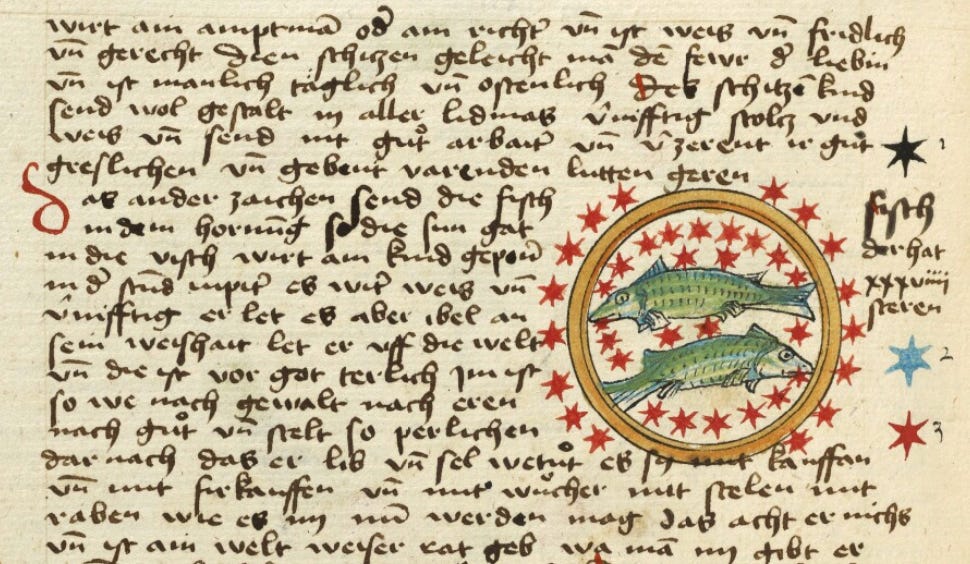 wirt am amptmā od̄ am richt̄ vn̄ ist weis vn̄ fridlich
vn̄ gerecht Dien schitzen geleicht mā dē fewr d̄ liebin
vn̄ ist manlich täglich vn̄ ostenlich Des schitzē kind
send wol gestalt in aller lidmas v̂nifftig stolcz vnd
weis vn̄ send mit guͦt arbait vn̄ v̂zerent ir guͦt
greslichen vn̄ gebent varenden lutten geren
das ander zaichen send die fisch
in dem hornūg so die sun gat
in die visch wirt am kind geporn̄
in d̄ stūd inpit̄ es wir̄ weis vn̄
v̂nifftig er let es aber ibel an
sein weishait let er vff die welt
vn̄ die ist vor got terlich Im ist
so we nach gewalt nach eren
nach guͦt vn̄ stelt so perlichen
dar nach das er lib vn̄ sel wetuͦt es sy mit kauffan
vn̄ mit firkauffen vn̄ mit wuͦcher mit stelen mit
raben wie es im nū werden mag das acht er nichs
vn̄ ist ain welt weiser rat geb wa mā im gibt er
1
fisch
der hat
xxxviiii
steren
2
3